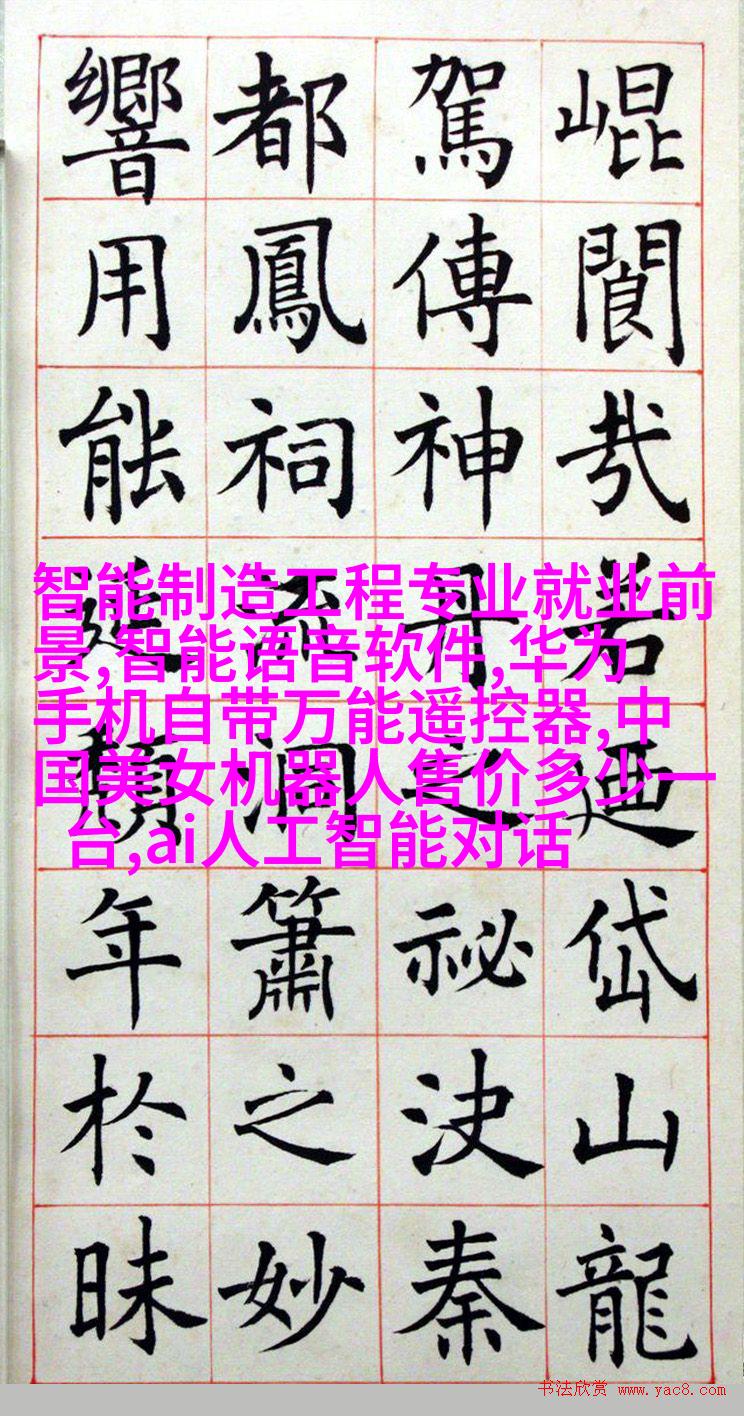 崐閬㦲若廼岱山龍
駕傳神丹之祕決秦
都鳳祠流洞簫之妙
響用能延頽年於昧
智能制造工程专业就业前
景,智能语音软件,华为
手机自带万能遥控器,中
国美女机器人售价多少一
台,ai人工智能对话
书法欣赏 www.yac8.com